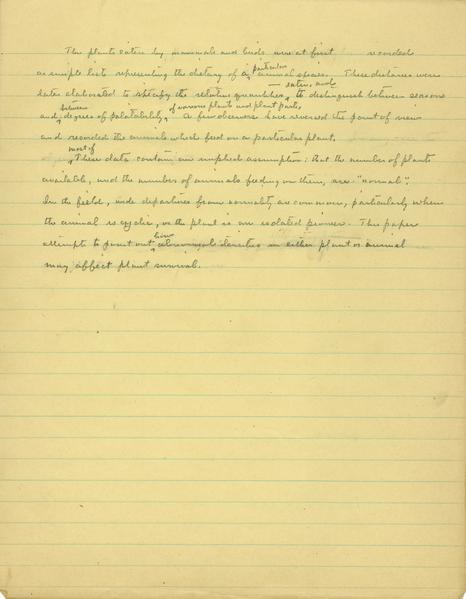 The plants eaten by mammals and birds were at first recorded
as simple lists representing the dietary of a particular animal species. These dietaries were
later elaborated to specify the relative quantities eaten, and to distinguish between seasons
and between degrees of palatability of various plants and plant parts. A few observers have reversed the point of view
and recorded the animals which feed on a particular plant.
most of These data contain an implicit assumption: that the number of plants
available, and the number of animals feeding on them, are "normal".
In the field, wide departures from normality are common, particularly when
the animal is cyclic, or the plant is an isolated pioneer. This paper
attempts to point out how abnormal densities in either plant or animal
may affect plant survival.